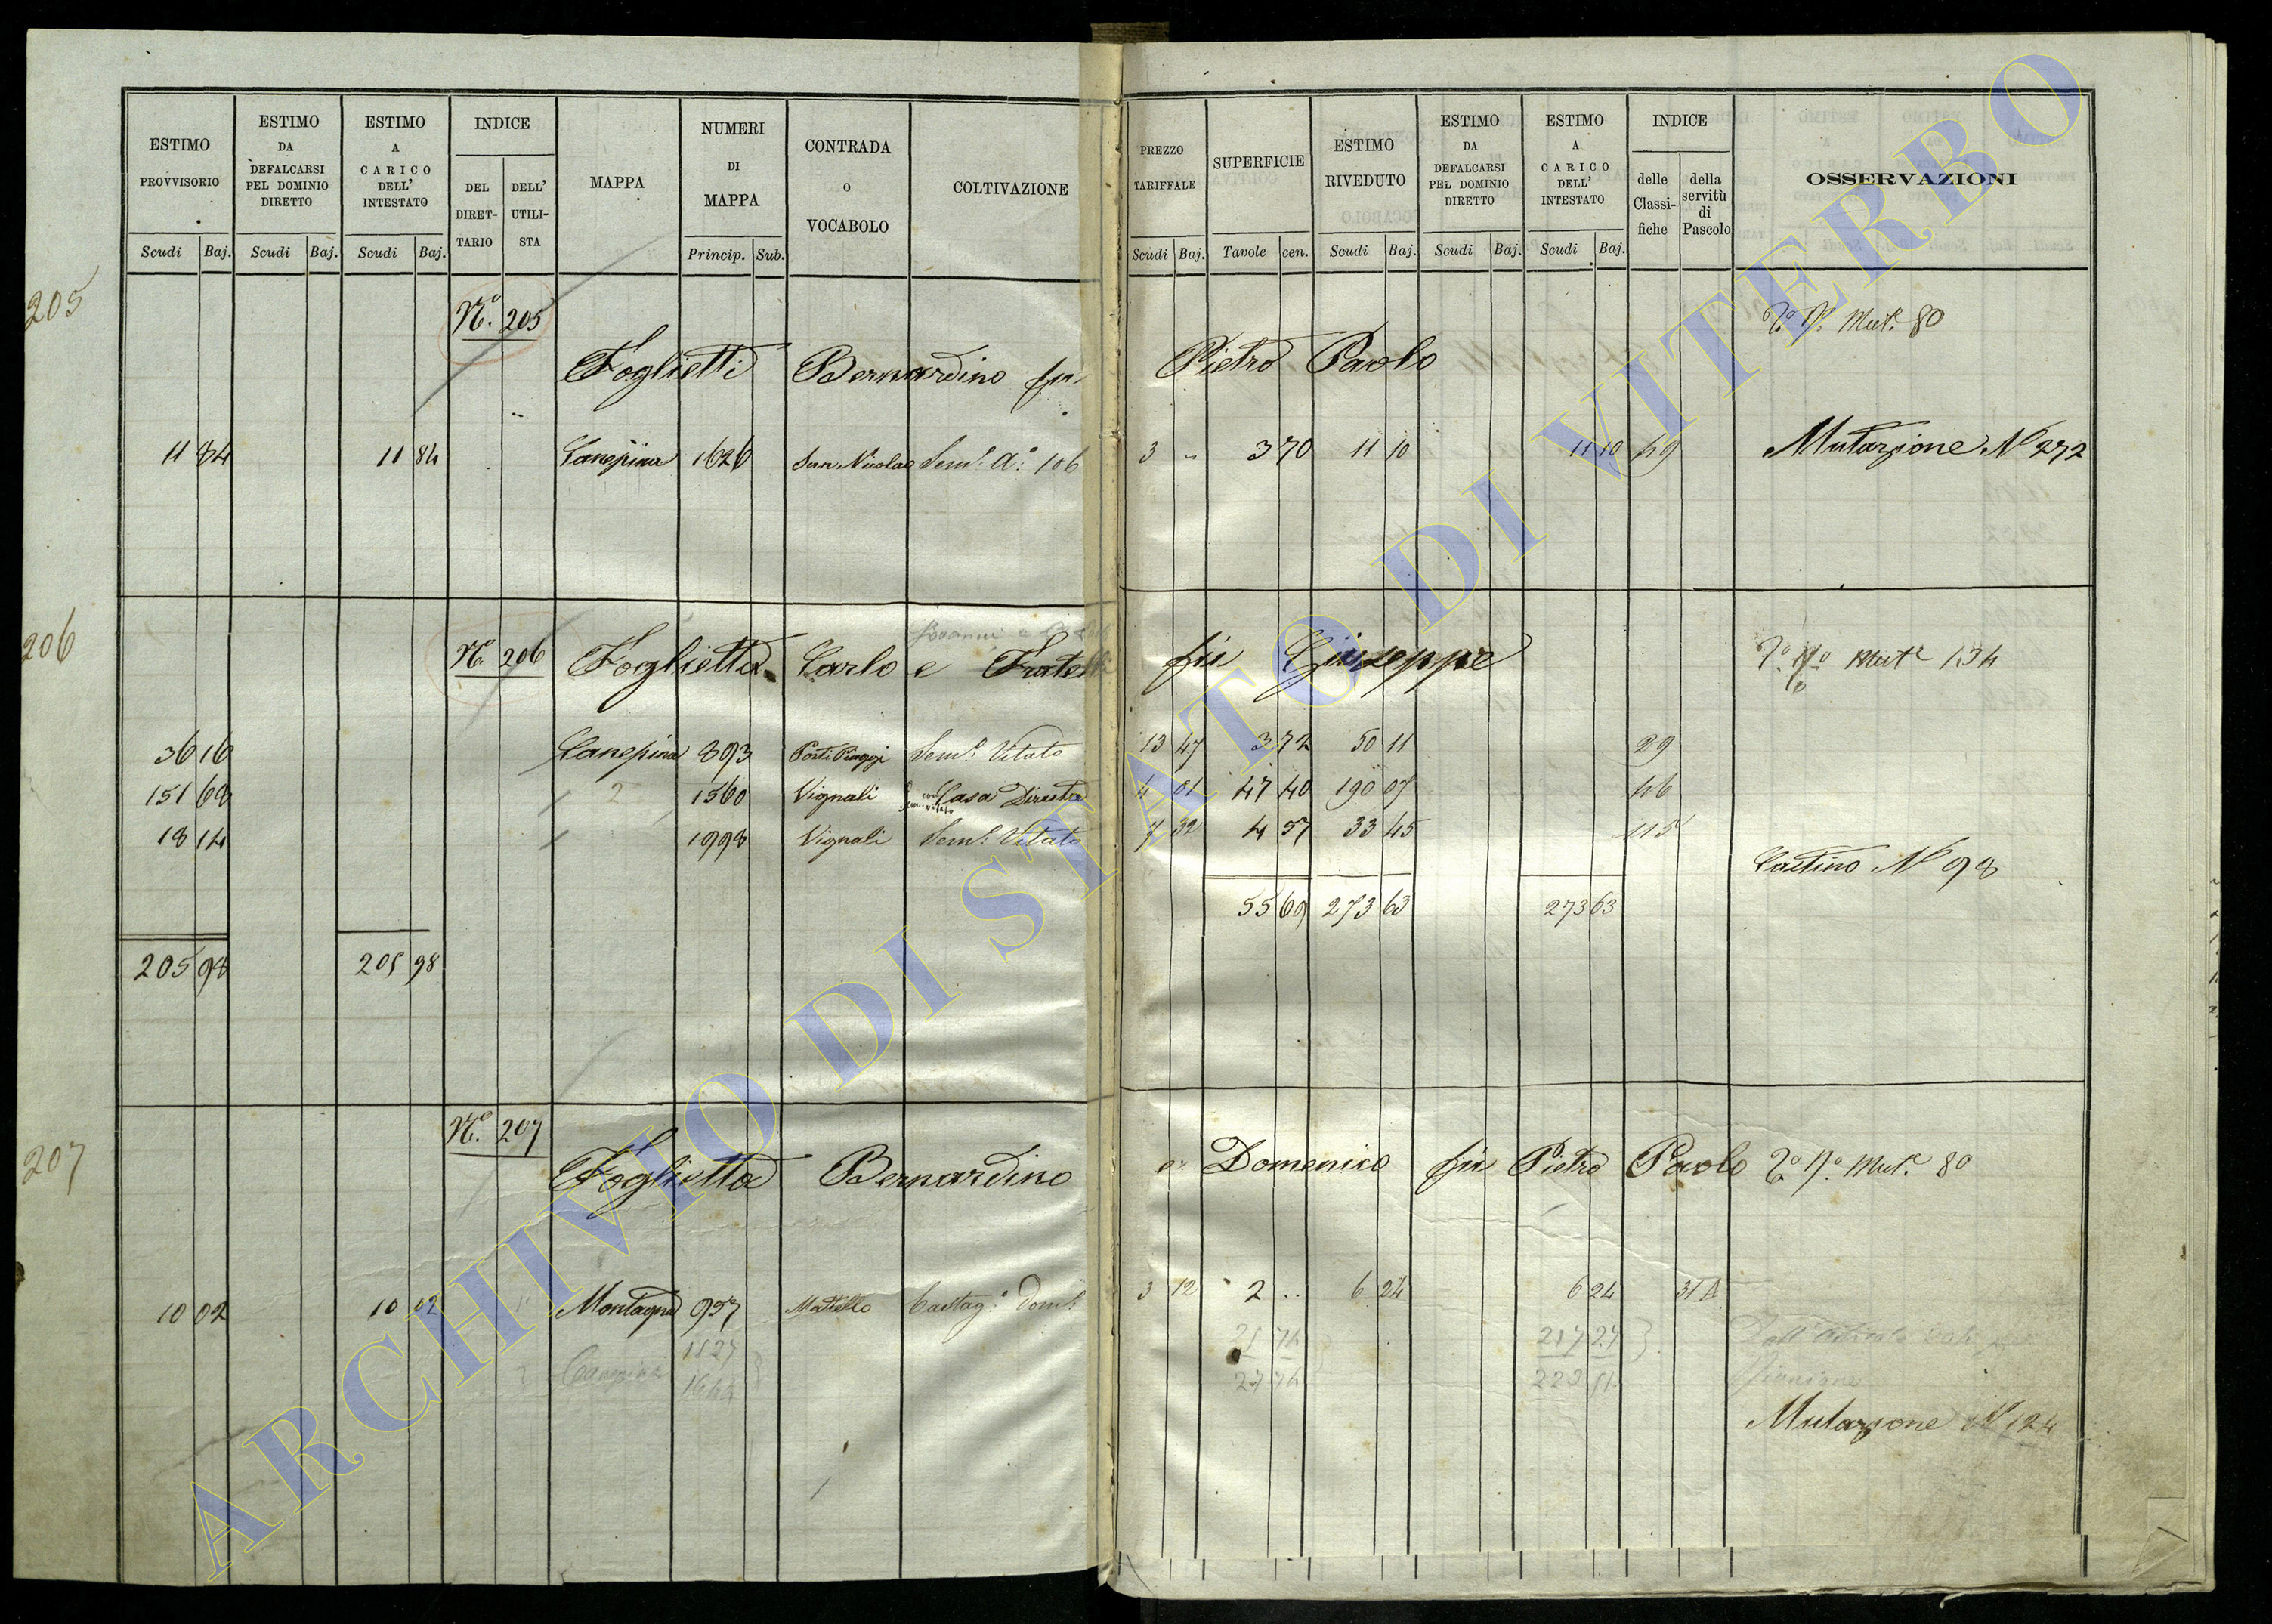 ESTIMO PROVVISORIO Scudi Baj.
ESTIMO DA DEFALCARSI PEL DOMINIO DIRETTO Scudi Baj.
ESTIMO A CARICO DELL' INTESTATO Scudi Baj.
INDICE DEL DIRET-TARIO DELL' UTILI-STA
MAPPA
NUMERI DI MAPPA Princip. Sub.
CONTRADA O VOCABOLO
COLTIVAZIONE
PREZZO TARIFFALE Scudi Baj.
SUPERFICIE Tavole cen.
ESTIMO RIVEDUTO Scudi Baj.
ESTIMO DA DEFALCARSI PEL DOMINIO DIRETTO Scudi Baj.
ESTIMO A CARICO DELL' INTESTATO Scudi Baj.
INDICE delle Classi-fiche della servitù di Pascolo
OSSERVAZIONI
205
N.º 205
Mut.e 80
Foglietti Bernardino fu Pietro Paolo
11 84 11 84 Canepina 1626 San Nicola Sem.o A.o 106 3 " 3 70 11 10 11 10 49 Mutazione N 272
206
N.º 206
Foglietta Carlo e Fratelli fu Giuseppe
Mut.e 134
36 16 Canepina 893 Sem.o Vitato 13 47 3 72 50 11 29
151 68 2 1560 Vignali Casa Diruta 4 01 47 40 190 07 46
18 14 1998 Vignali Sem.o Vitato 7 32 4 57 33 45 115
N 98
55 69 273 63 273 63
205 98 205 98
207
N.º 207
Foglietta Bernardino e Domenico fu Pietro Paolo Mut.e 80
10 02 10 02 Montagna 957 Mattello Castag.o Dom.o 3 12 2 .. 6 24 6 24 31 A
1527 25 74 217 27
Canepina 1644 27 74 223 51
Mutazione N 124
ARCHIVIO DI STATO DI VITERBO